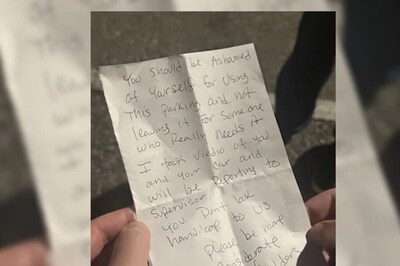 You Should be Ashamed
of Yourself for Using
This parking and not
leaving it for someone
who Really needs it
I took video of you
and your car and
will be Reporting to
Supervisor
You Don't look
handicap to us
please be more
Considerate